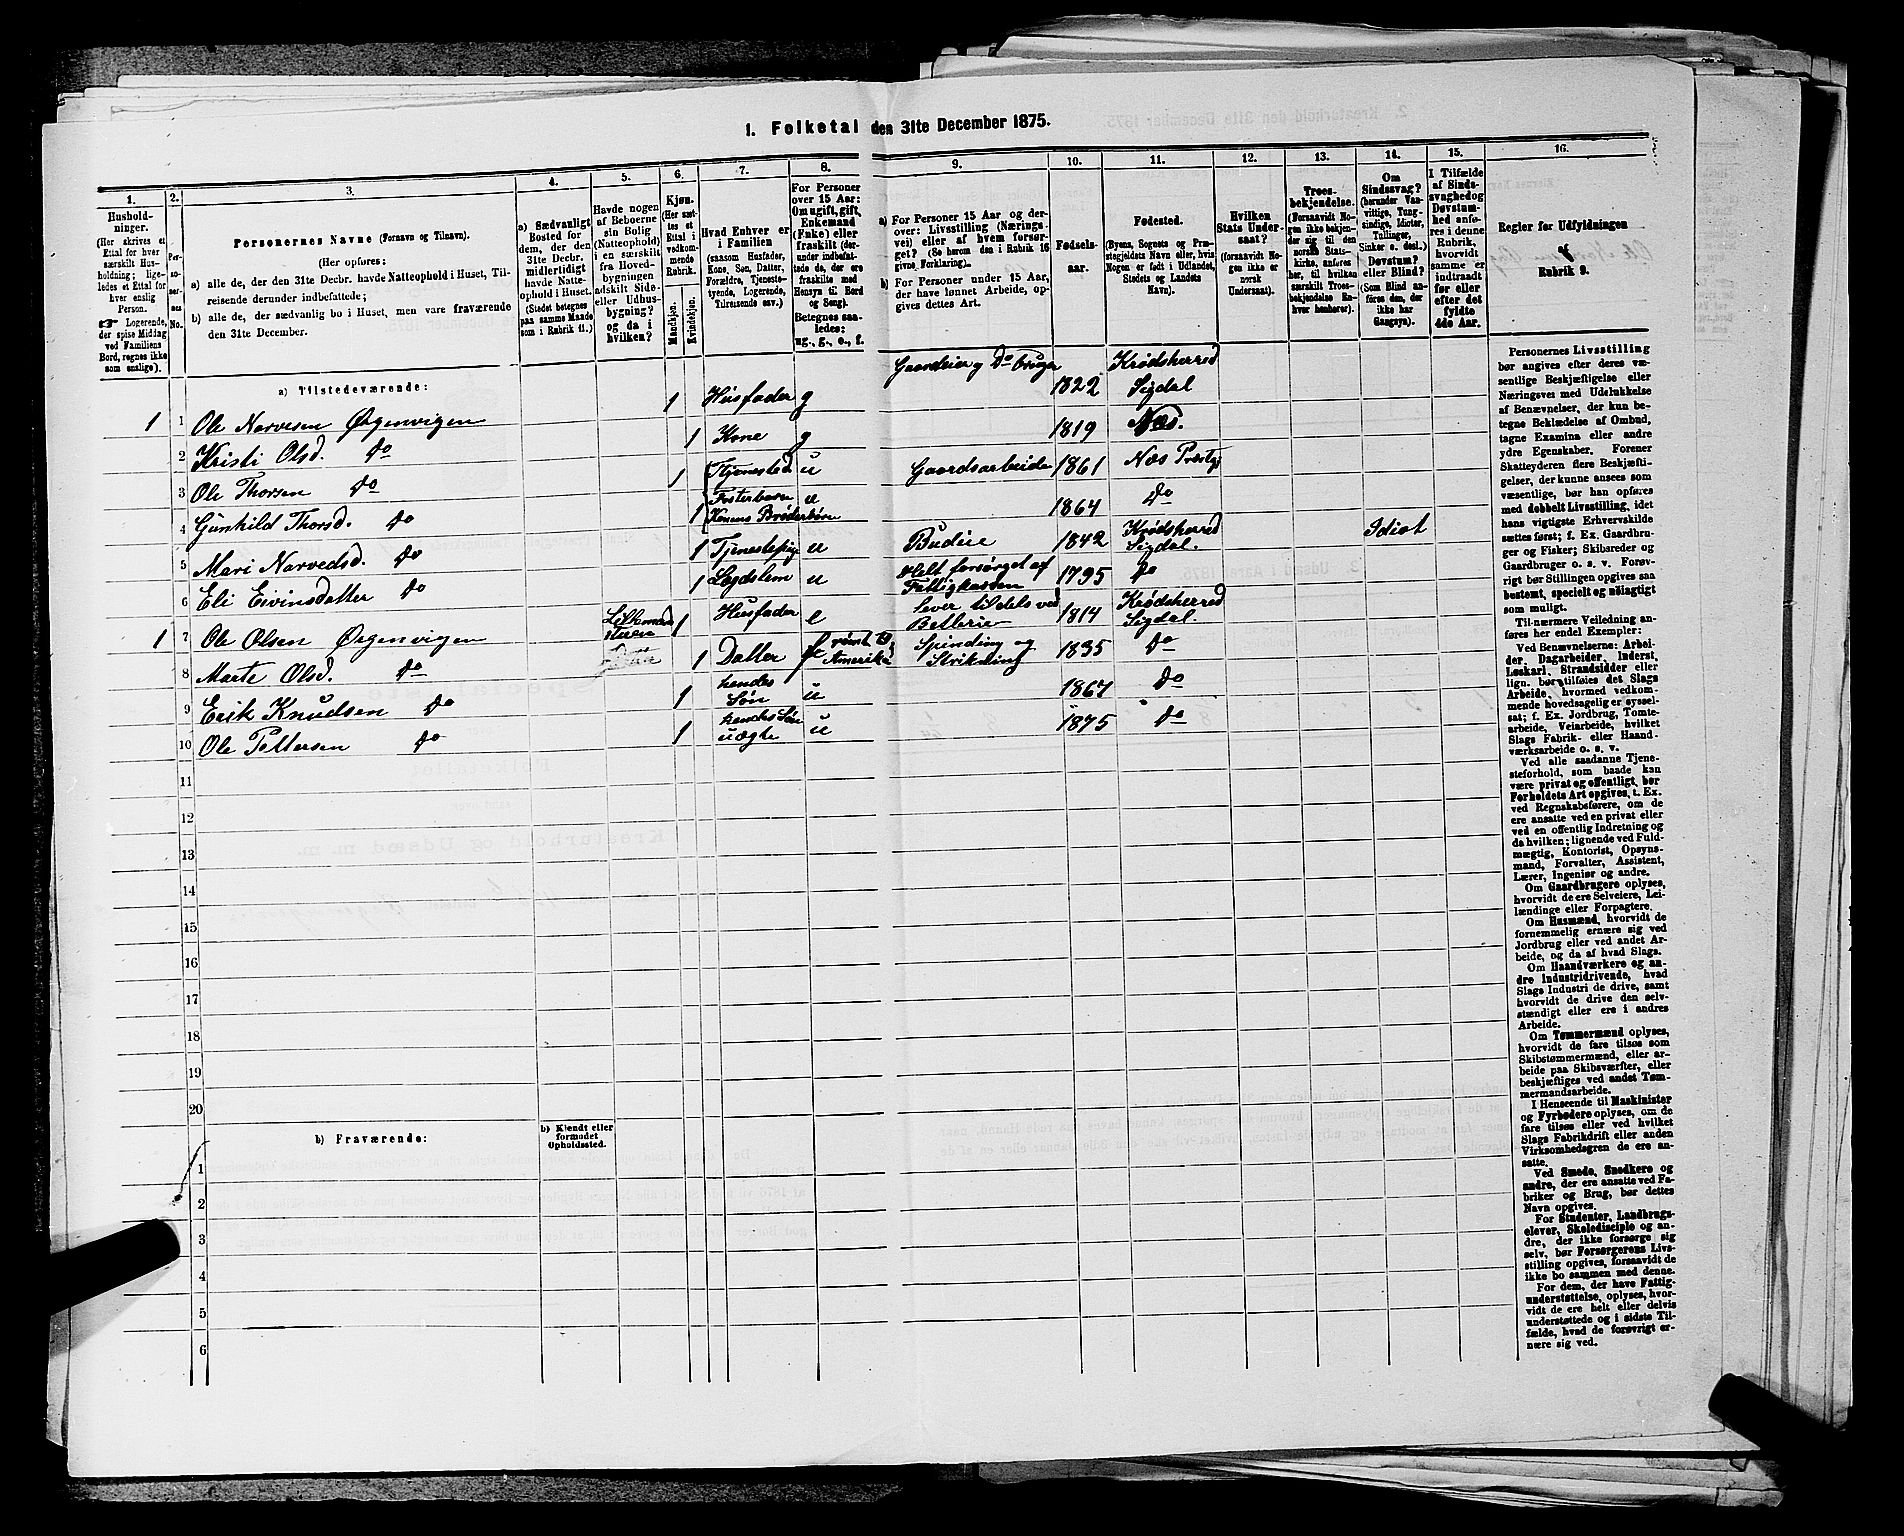 1. Folketal den 31te December 1875.
1.
Hushold-
ninger.
(Her skrives et
Ettal for hver
særskilt Hus-
holdning; lige-
ledes et Ettal for
hver enslig
Person.
Logerende,
der spise Middag
ved Familiens
Bord, regnes ikke
som enslige).
2.
Per-
so-
ner-
nes
No.
3.
Personernes Navne (Fornavn og Tilnavn).
(Her opføres:
a) alle de, der den 31te Decbr. havde Natteophold i Huset, Til-
reisende derunder indbefattede;
b) alle de, der sædvanlig bo i Huset, men vare fraværende
den 31te December.
4.
a) Sædvanligt
Bosted for
dem, der den
31te Decbr.
midlertidigt
havde Natte-
ophold i Huset.
(Stedet betegnes
paa samme Maade
som i Rubrik 11.)
5.
Havde nogen
af Beboerne
sin Bolig
(Natteophold)
i en særskilt
fra Hoved-
bygningen
adskilt Side-
eller Udhus-
bygning?
og da i
hvilken?
6.
Kjøn.
(Her sæt-
tes et
Ettal i
vedkom-
mende
Rubrik.
Mandkjøn.
Kvindekjøn.
7.
Hvad Enhver er
i Familien
(saasom Husfader,
Kone, Søn, Datter,
Forældre, Tjeneste-
tyende, Logerende,
Tilreisende osv.)
8.
For Personer
over 15 Aar:
Om ugift, gift,
Enkemand
(Enke) eller
fraskilt (der-
under indbefat-
tede de, der ere
fraskilte med
Hensyn til Bord
og Seng).
Betegnes saa-
ledes:
ug., g., e., f.
9.
a) For Personer 15 Aar og der-
over: Livsstilling (Nærings-
vei) eller af hvem forsør-
get? (Se herom den i Rubrik 16
givne Forklaring).
b) For Personer under 15 Aar,
der have lønnet Arbeide, op-
gives dettes Art.
10.
Fødsels-
aar.
11.
Fødested.
(Byens, Sognets og Præ-
stegjeldets Navn eller, hvis
Nogen er født i Udlandet,
Stedets og Landets
Navn).
12.
Hvilken
Stats Under-
saat?
(foraavidt No-
gen ikke er
norsk
Undersaat).
13.
Troes-
bekjendelse.
(Forsaavidt No-
gen ikke bekjen-
der sig til den
norske Stats-
kirke, anføres
her, til hvilken
særskilt Troes-
bekjendelse En-
hver henhører).
14.
Om
Sindssvag?
(herunder Van-
vittige, Tung-
sindige, Idioter,
Tullinger,
Sinker o. desl.)
Døvstum?
eller Blind?
(Som Blind an-
føres den, der
ikke har
Gangsyn).
15.
I Tilfælde
af Sinds-
svaghed og
Døvstum-
hed anfø-
res i denne
Rubrik,
hvorvidt
samme er
indtraadt
før eller
efter det
fyldte
4de Aar.
16.
Regler for Udfyldningen
af
Rubrik 9.
a) Tilstedeværende:
1 1 Ole Narvesen Ørgenvigen 1 Husfader g Gaardeier og Do bruger 1822 Krødsherred Sigdal
2 Kristi Olsd. Do 1 Kone g 1819 Næs.
3 Ole Thorsen Do 1 Tjenested. u Gaardsarbeide 1861 Næs Præstgj
4 Gunhild Thorsd. Do 1 Fosterbørn Konens Broderbørn u 1864 Do
5 Mari Narvedsd. Do 1 Tjenestepig u Budeie 1842 Krødsherred Sigdal. Idiot
6 Eli Eivinsdatter Do 1 Lægdslem u Helt forsørget af Fattigkassen 1795 Do
1 7 Ole Olsen Ørgenvigen 1 Husfader e Lever tildels ved Betlerie 1814 Krødsherred Sigdal.
8 Marte Olsd. Do 1 Datter rømt til Amerika Spinding og Strikning 1835 Do
9 Erik Knudsen Do 1 hendes Søn u 1867 Do
10 Ole Pettersen Do 1 hendes Søn uægte u 1875 Do
11
12
13
14
15
16
17
18
19
20
b) Fraværende:
b) Kjendt eller
formodet
Opholdssted.
1
2
3
4
5
6
Personernes Livsstilling
bør angives efter deres væ-
sentlige Beskjæftigelse eller
Næringsvei med Udelukkelse
af Benævnelser, der kun be-
tegne Beklædelse af Ombud,
tagne Examina eller andre
ydre Egenskaber. Forener
Skatteyderen flere Beskjæfti-
gelser, der kunne ansees som
væsentlige, bør han opføres
med dobbelt Livsstilling, idet
hans vigtigste Erhvervskilde
sættes først; f. Ex. Gaardbru-
ger og Fisker; Skibsreder og
Gaardbruger o. s. v. Forøv-
rigt bør Stillingen opgives saa
bestemt, specielt og nøiagtigt
som muligt.
Til nærmere Veiledning an-
føres her endel Exempler:
Ved Benævnelserne: Arbei-
der, Dagarbeider, Inderst,
Løskarl, Strandsidder eller
lign. bør tilføies det Slags
Arbeide, hvormed vedkom-
mende hovedsagelig er syssel-
sat; f. Ex. Jordbrug, Tomte-
arbeide, Veiarbeide, hvilket
Slags Fabrik- eller Haand-
værksarbeide o. s. v.
Ved alle saadanne Tjene-
steforhold, som baade kan
være privat og offentligt, bør
Forholdets Art opgives, t. Ex.
ved Regnskabsførere, om de
ere ansatte ved en privat eller
ved en offentlig Indretning og
da hvilken; lignende ved Fuld-
mægtig, Kontorist, Opsyns-
mand, Forvalter, Assistent,
Lærer, Ingeniør og andre.
Om Gaardbrugere oplyses,
hvorvidt de ere Selveiere, Lei-
lændinge eller Forpagtere.
Om Husmænd, hvorvidt de
fornemmelig ernære sig ved
Jordbrug eller ved andet Ar-
beide, og da af hvad Slags.
Om Haandværkere og an-
dre Industridrivende, hvad
Slags Industri de drive, samt
hvorvidt de drive den selv-
stændigt eller ere i andres
Arbeide.
Om Tømmermænd oplyses,
hvorvidt de fare tilsøs som
Skibstømmermænd, eller ar-
beide paa Skibsværfter, eller
beskjæftiges ved andet Tøm-
mermandsarbeide.
I Henseende til Maskinister
og Fyrbødere oplyses, om de
fare tilsøs eller ved hvilket
Slags Fabrikdrift eller anden
Virksomhedsgren de ere an-
satte.
Ved Smede, Snedkere og
andre, der ere ansatte ved Fa-
briker og Brug, bør dettes
Navn opgives.
For Studenter, Landbrugs-
elever, Skoledisciple og an-
dre, der ikke forsørge sig
selv, bør Forsørgerens Livs-
stilling opgives, forsaavidt de
ikke bo sammen med denne.
For dem, der have Fattig-
understøttelse, oplyses, hvor-
vidt de ere helt eller delvis
understøttede og i sidste Til-
fælde, hvad de forøvrigt er-
nære sig ved.